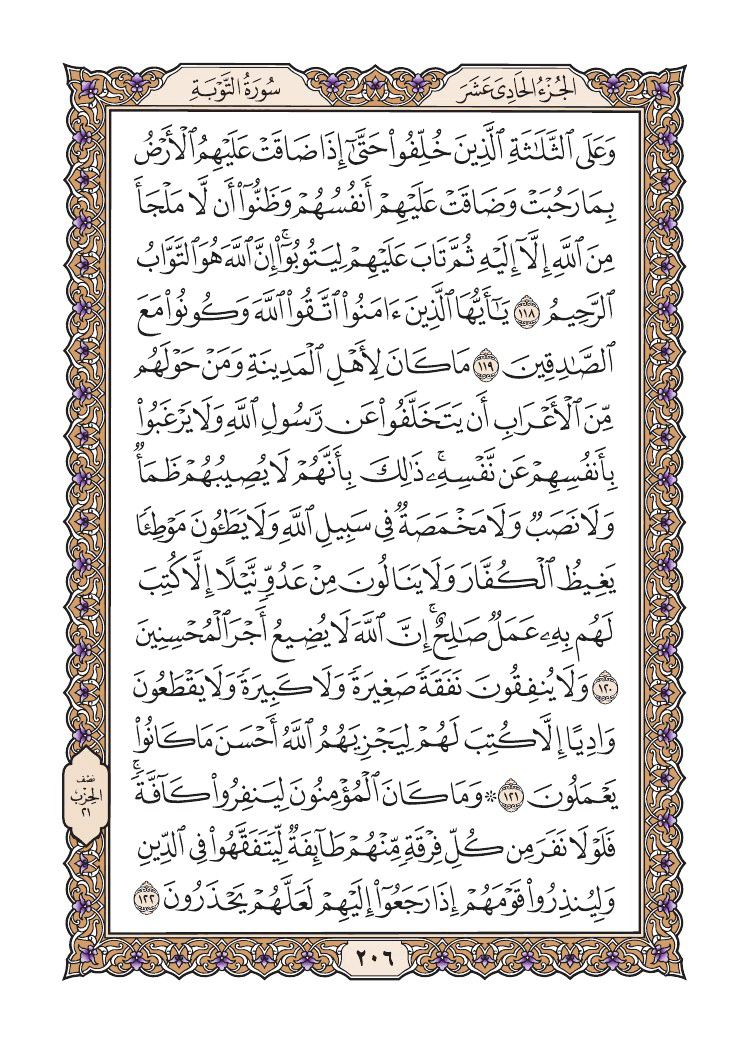 الجُزْءُ الحَادِى عَشَرَ
سُورَةُ التَّوْبَةِ
وَعَلَى ٱلثَّلَٰثَةِ ٱلَّذِينَ خُلِّفُوا۟ حَتَّىٰٓ إِذَا ضَاقَتْ عَلَيْهِمُ ٱلْأَرْضُ
بِمَا رَحُبَتْ وَضَاقَتْ عَلَيْهِمْ أَنفُسُهُمْ وَظَنُّوٓا۟ أَن لَّا مَلْجَأَ
مِنَ ٱللَّهِ إِلَّآ إِلَيْهِ ثُمَّ تَابَ عَلَيْهِمْ لِيَتُوبُوٓا۟ۚ إِنَّ ٱللَّهَ هُوَ ٱلتَّوَّابُ
ٱلرَّحِيمُ ١١٨ يَٰٓأَيُّهَا ٱلَّذِينَ ءَامَنُوا۟ ٱتَّقُوا۟ ٱللَّهَ وَكُونُوا۟ مَعَ
ٱلصَّٰدِقِينَ ١١٩ مَا كَانَ لِأَهْلِ ٱلْمَدِينَةِ وَمَنْ حَوْلَهُم
مِّنَ ٱلْأَعْرَابِ أَن يَتَخَلَّفُوا۟ عَن رَّسُولِ ٱللَّهِ وَلَا يَرْغَبُوا۟
بِأَنفُسِهِمْ عَن نَّفْسِهِۦۚ ذَٰلِكَ بِأَنَّهُمْ لَا يُصِيبُهُمْ ظَمَأٌ
وَلَا نَصَبٌ وَلَا مَخْمَصَةٌ فِى سَبِيلِ ٱللَّهِ وَلَا يَطَـُٔونَ مَوْطِئًا
يَغِيظُ ٱلْكُفَّارَ وَلَا يَنَالُونَ مِنْ عَدُوٍّ نَّيْلًا إِلَّا كُتِبَ
لَهُم بِهِۦ عَمَلٌ صَٰلِحٌۚ إِنَّ ٱللَّهَ لَا يُضِيعُ أَجْرَ ٱلْمُحْسِنِينَ
١٢٠ وَلَا يُنفِقُونَ نَفَقَةً صَغِيرَةً وَلَا كَبِيرَةً وَلَا يَقْطَعُونَ
وَادِيًا إِلَّا كُتِبَ لَهُمْ لِيَجْزِيَهُمُ ٱللَّهُ أَحْسَنَ مَا كَانُوا۟
يَعْمَلُونَ ١٢١ ۞ وَمَا كَانَ ٱلْمُؤْمِنُونَ لِيَنفِرُوا۟ كَآفَّةًۚ
فَلَوْلَا نَفَرَ مِن كُلِّ فِرْقَةٍ مِّنْهُمْ طَآئِفَةٌ لِّيَتَفَقَّهُوا۟ فِى ٱلدِّينِ
وَلِيُنذِرُوا۟ قَوْمَهُمْ إِذَا رَجَعُوٓا۟ إِلَيْهِمْ لَعَلَّهُمْ يَحْذَرُونَ ١٢٢
نصف
الحزب
٢١
٢٠٦